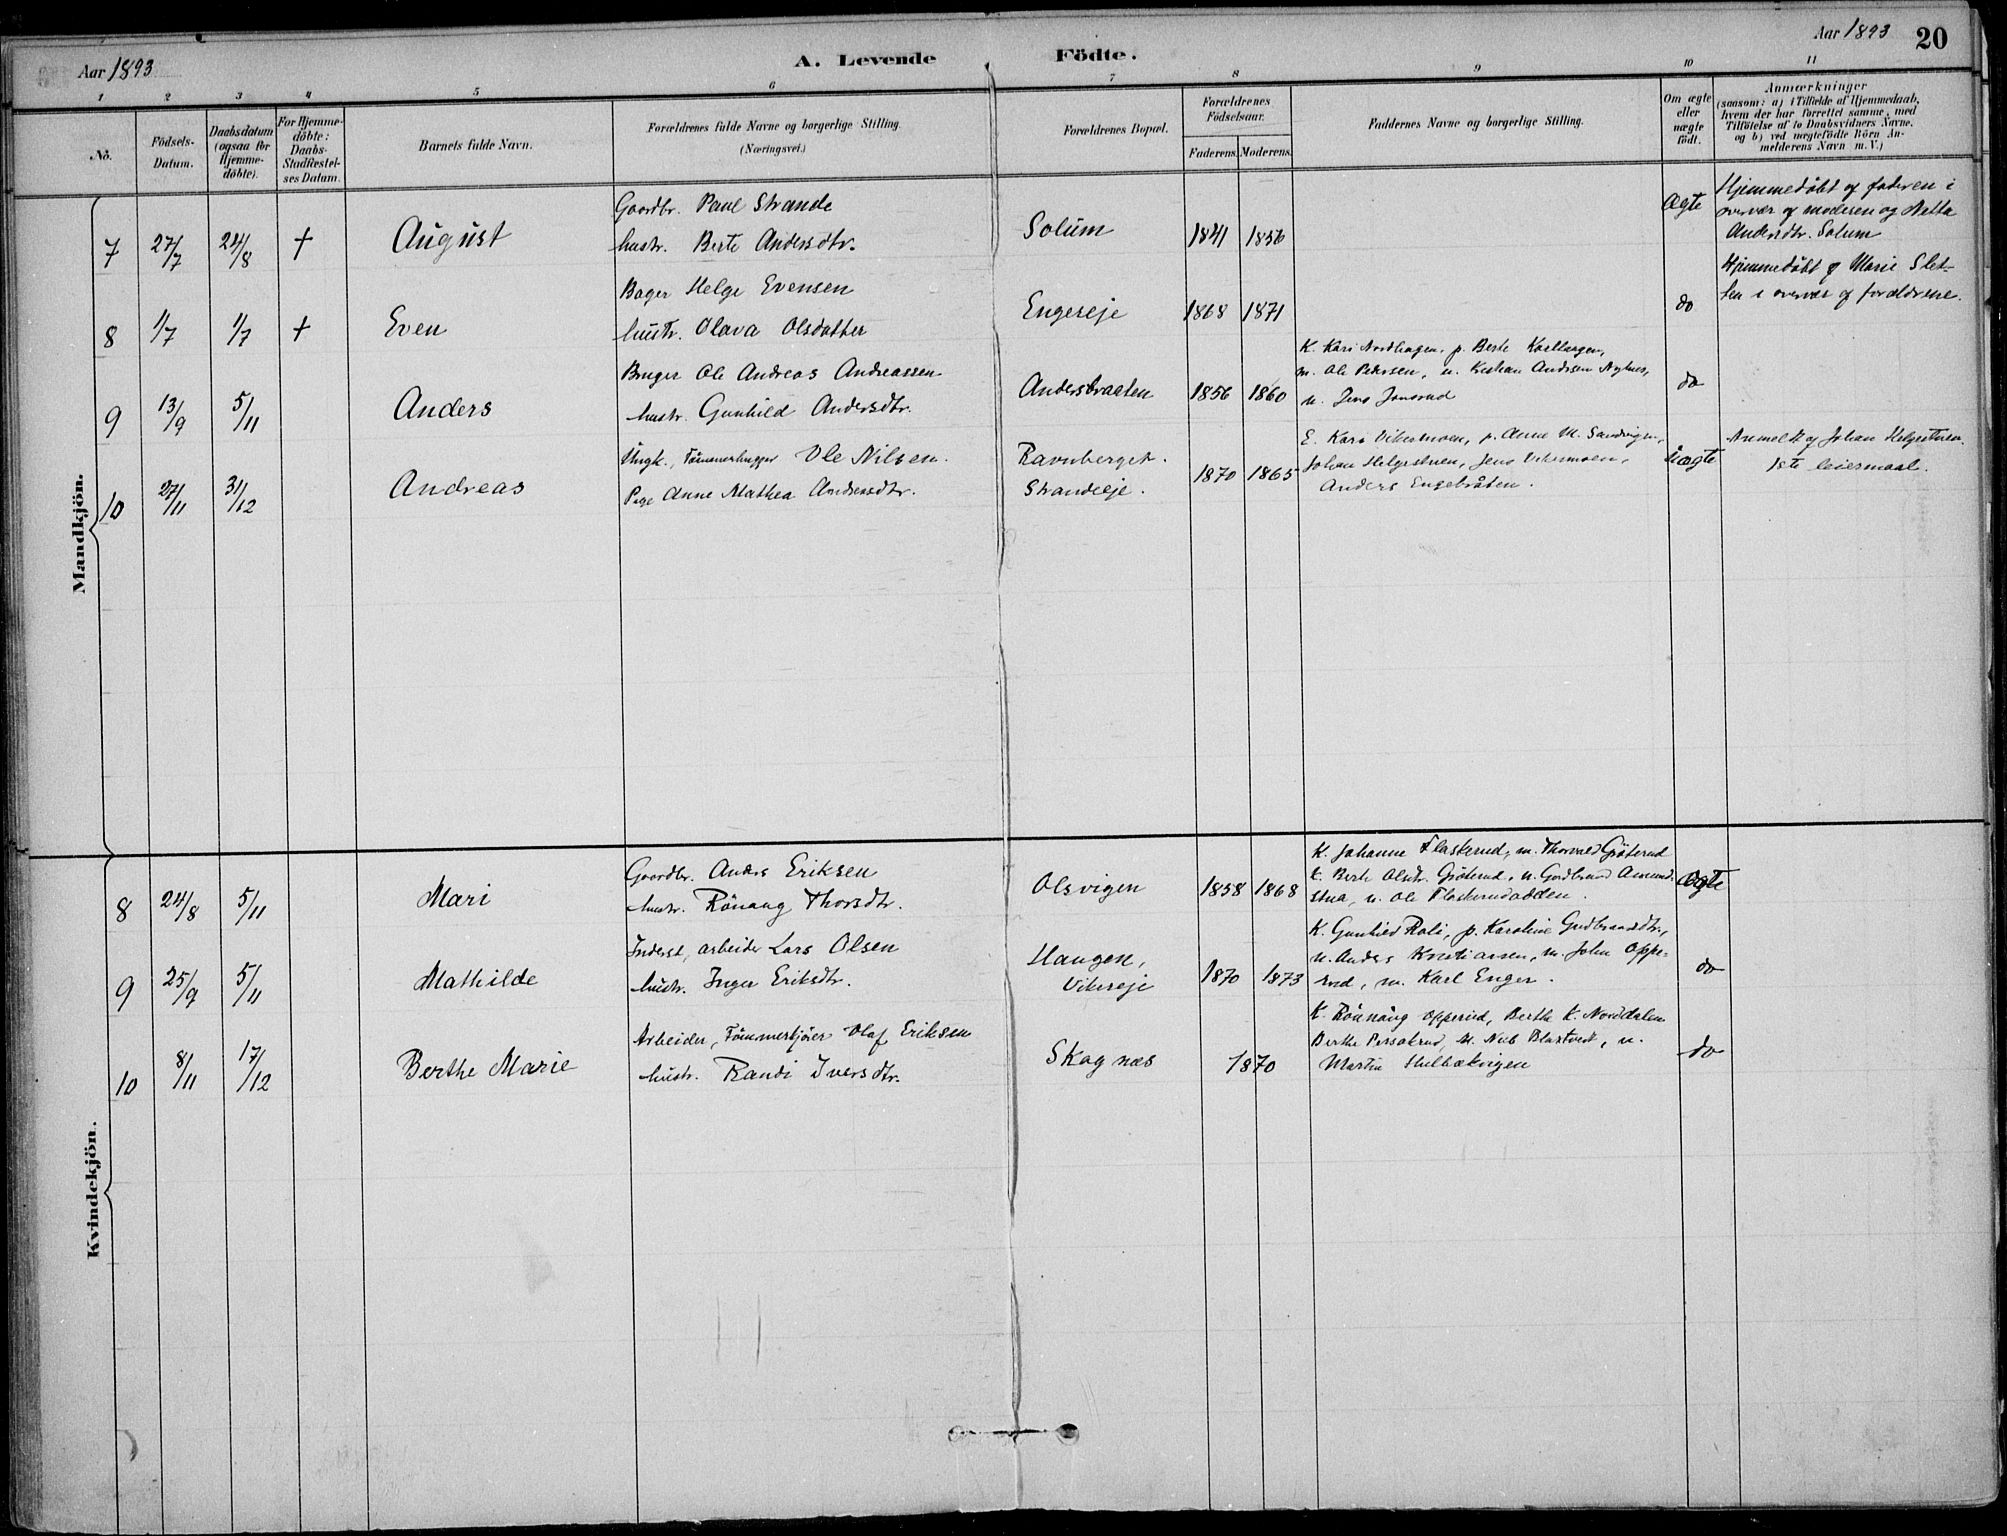 Aar 1893
A. Levende Födte.
Aar 1893 20
1 2 3 4 5 6 7 8 9 10 11
No.
Födsels-Datum.
Daabsdatum (ogsaa for Hjemme-döbte).
For Hjemme-döbte: Daabs-Stadfæstel-ses Datum.
Barnets fulde Navn.
Forældrenes fulde Navne og borgerlige Stilling.
(Næringsvei.)
Forældrenes Bopæl.
Forældrenes Födselsaar.
Faderens. Moderens.
Faddernes Navne og borgerlige Stilling.
Om ægte eller uægte födt.
Anmærkninger
(saasom: a) i Tilfælde af Hjemmedaab,
hvem der har forrettet samme, med
Tilföielse af to Daabsvidners Navne.
og b) ved uægtefödte Börn An-
melderens Navn m. V.)
Mandkjön.
7 27/7 24/8 + August
Gaardbr. Paul Strande
hustr. Berte Andersdtr.
Solum 1841 1856
Ægte
Hjemmedöbt af faderen i
overvær af moderen og Netta
Andersdtr. Solum
8 1/7 1/7 + Even
Bager Helge Evensen
hustr. Olava Olsdatter
Engereje 1868 1871
do
Hjemmedöbt af Marie Slet-
ten i overvær af forældrene.
9 13/9 5/11 Anders
Bruger Ole Andreas Andreassen
hustr. Gunhild Andersdtr.
Andersbraaten 1856 1860
K. Kari Nordhagen, p. Berte
m. Ole Pedersen, u. Kristian Andersen
u. Jens Jonsrud
do
10 27/11 31/12 Andreas
Ungk., Tömmerhugger Ole Nilsen.
Pige Anne Mathea Andersdtr.
Ravnberget.
Strandeje.
1870 1865
E. Kari Vikermoen, p. Anne M. Sandvigen,
Johan Helgestuen, Jens Vikermoen,
Anders Engebråten.
Uægte
Anmeldt af Johan Helgestuen.
1ste leiermaal.
Kvindekjön.
8 24/8 5/11 Mari
Gaardbr. Anders Eriksen
hustr. Rönaug Thorsdtr.
Olsvigen 1858 1868
K. Johanne Flaskerud, m. Thorvald Gröterud
K. Berte Olsdtr. Gröterud, u. Gudbrand Amund-
stua, u. Ole Flaskerudodden.
Ægte
9 25/9 5/11 Mathilde
Inderst, arbeider Lars Olsen
hustr. Inger Eriksdtr.
Haugen,
Vikereje
1870 1873
K. Gunhild Roli, p. Karoline Gudbrandsdtr.,
u. Anders Kristiansen, m. John Oppe-
rud, m. Karl Enger.
do
10 8/11 17/12 Berthe Marie
Arbeider, Tömmerkjörer Olaf Eriksen
hustr. Randi Iversdtr.
Skagnæs 1870
K. Rönnaug Opperud, Berthe K. Norddalen
Berthe Persakrud, M. Nils Blaxtvedt, u.
Martin
do